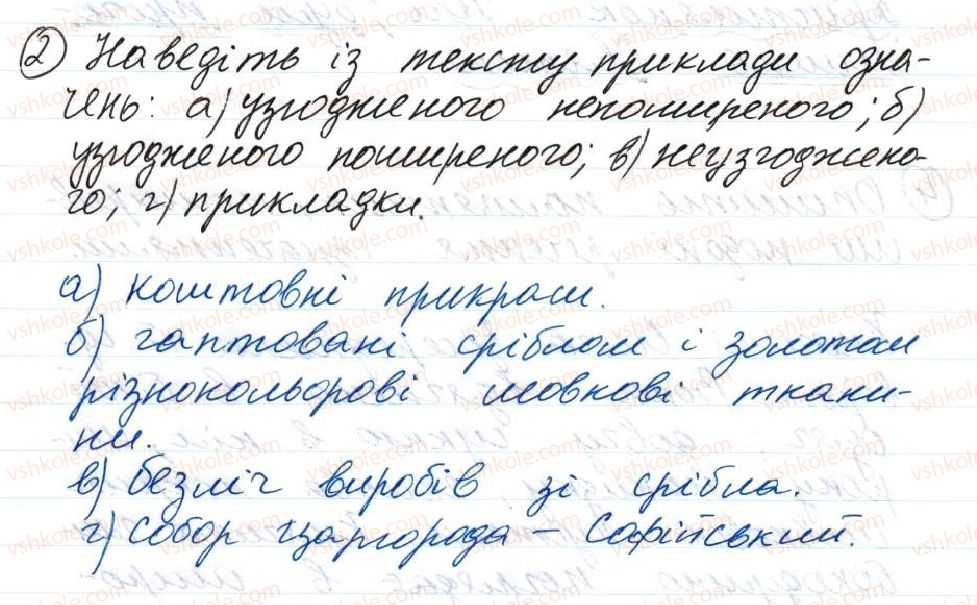 ② Наведіть із тексту приклади озна-
чень: а) узгодженого непоширеного; б)
узгодженого поширеного; в) неузгоджено-
го; г) прикладки.
а) коштовні прикраси.
б) гаптовані сріблом і золотом
різнокольорові шовкові ткани-
ни.
в) безліч виробів зі срібла.
г) собор Царгорода – Софійський.